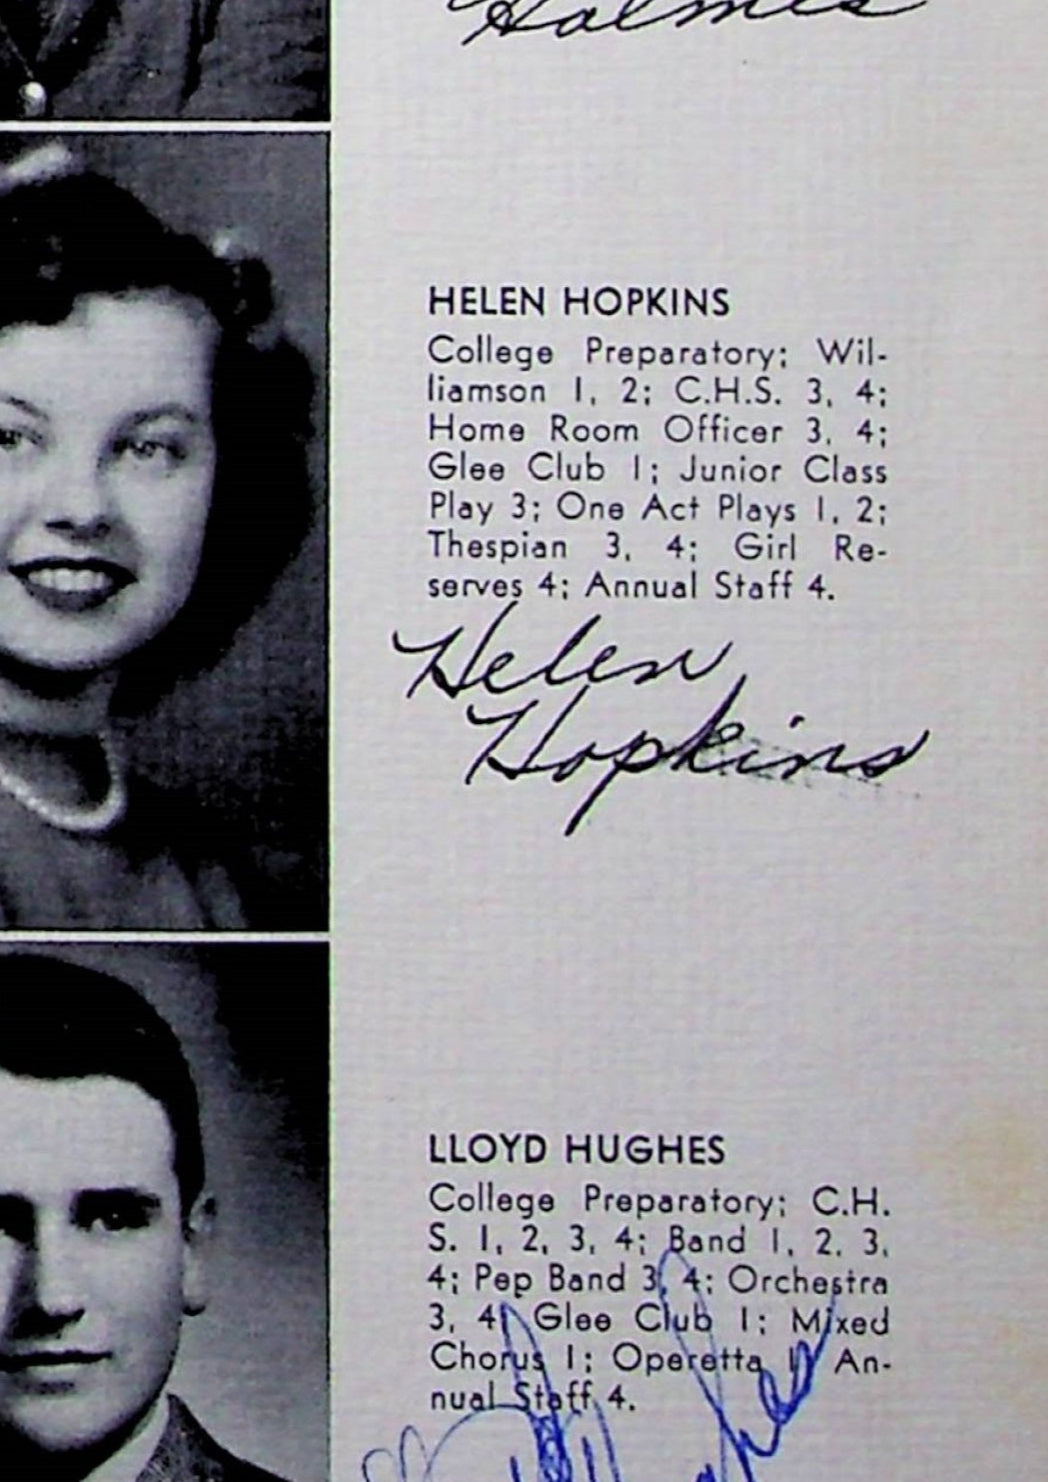 Holmes
HELEN HOPKINS
College Preparatory; Wil-
liamson 1, 2; C.H.S. 3, 4;
Home Room Officer 3, 4;
Glee Club 1; Junior Class
Play 3; One Act Plays 1, 2;
Thespian 3, 4; Girl Re-
serves 4; Annual Staff 4.
Helen
Hopkins
LLOYD HUGHES
College Preparatory; C.H.
S. 1, 2, 3, 4; Band 1, 2, 3,
4; Pep Band 3, 4; Orchestra
3, 4; Glee Club 1; Mixed
Chorus 1; Operetta 1; An-
nual Staff 4.
Hughes